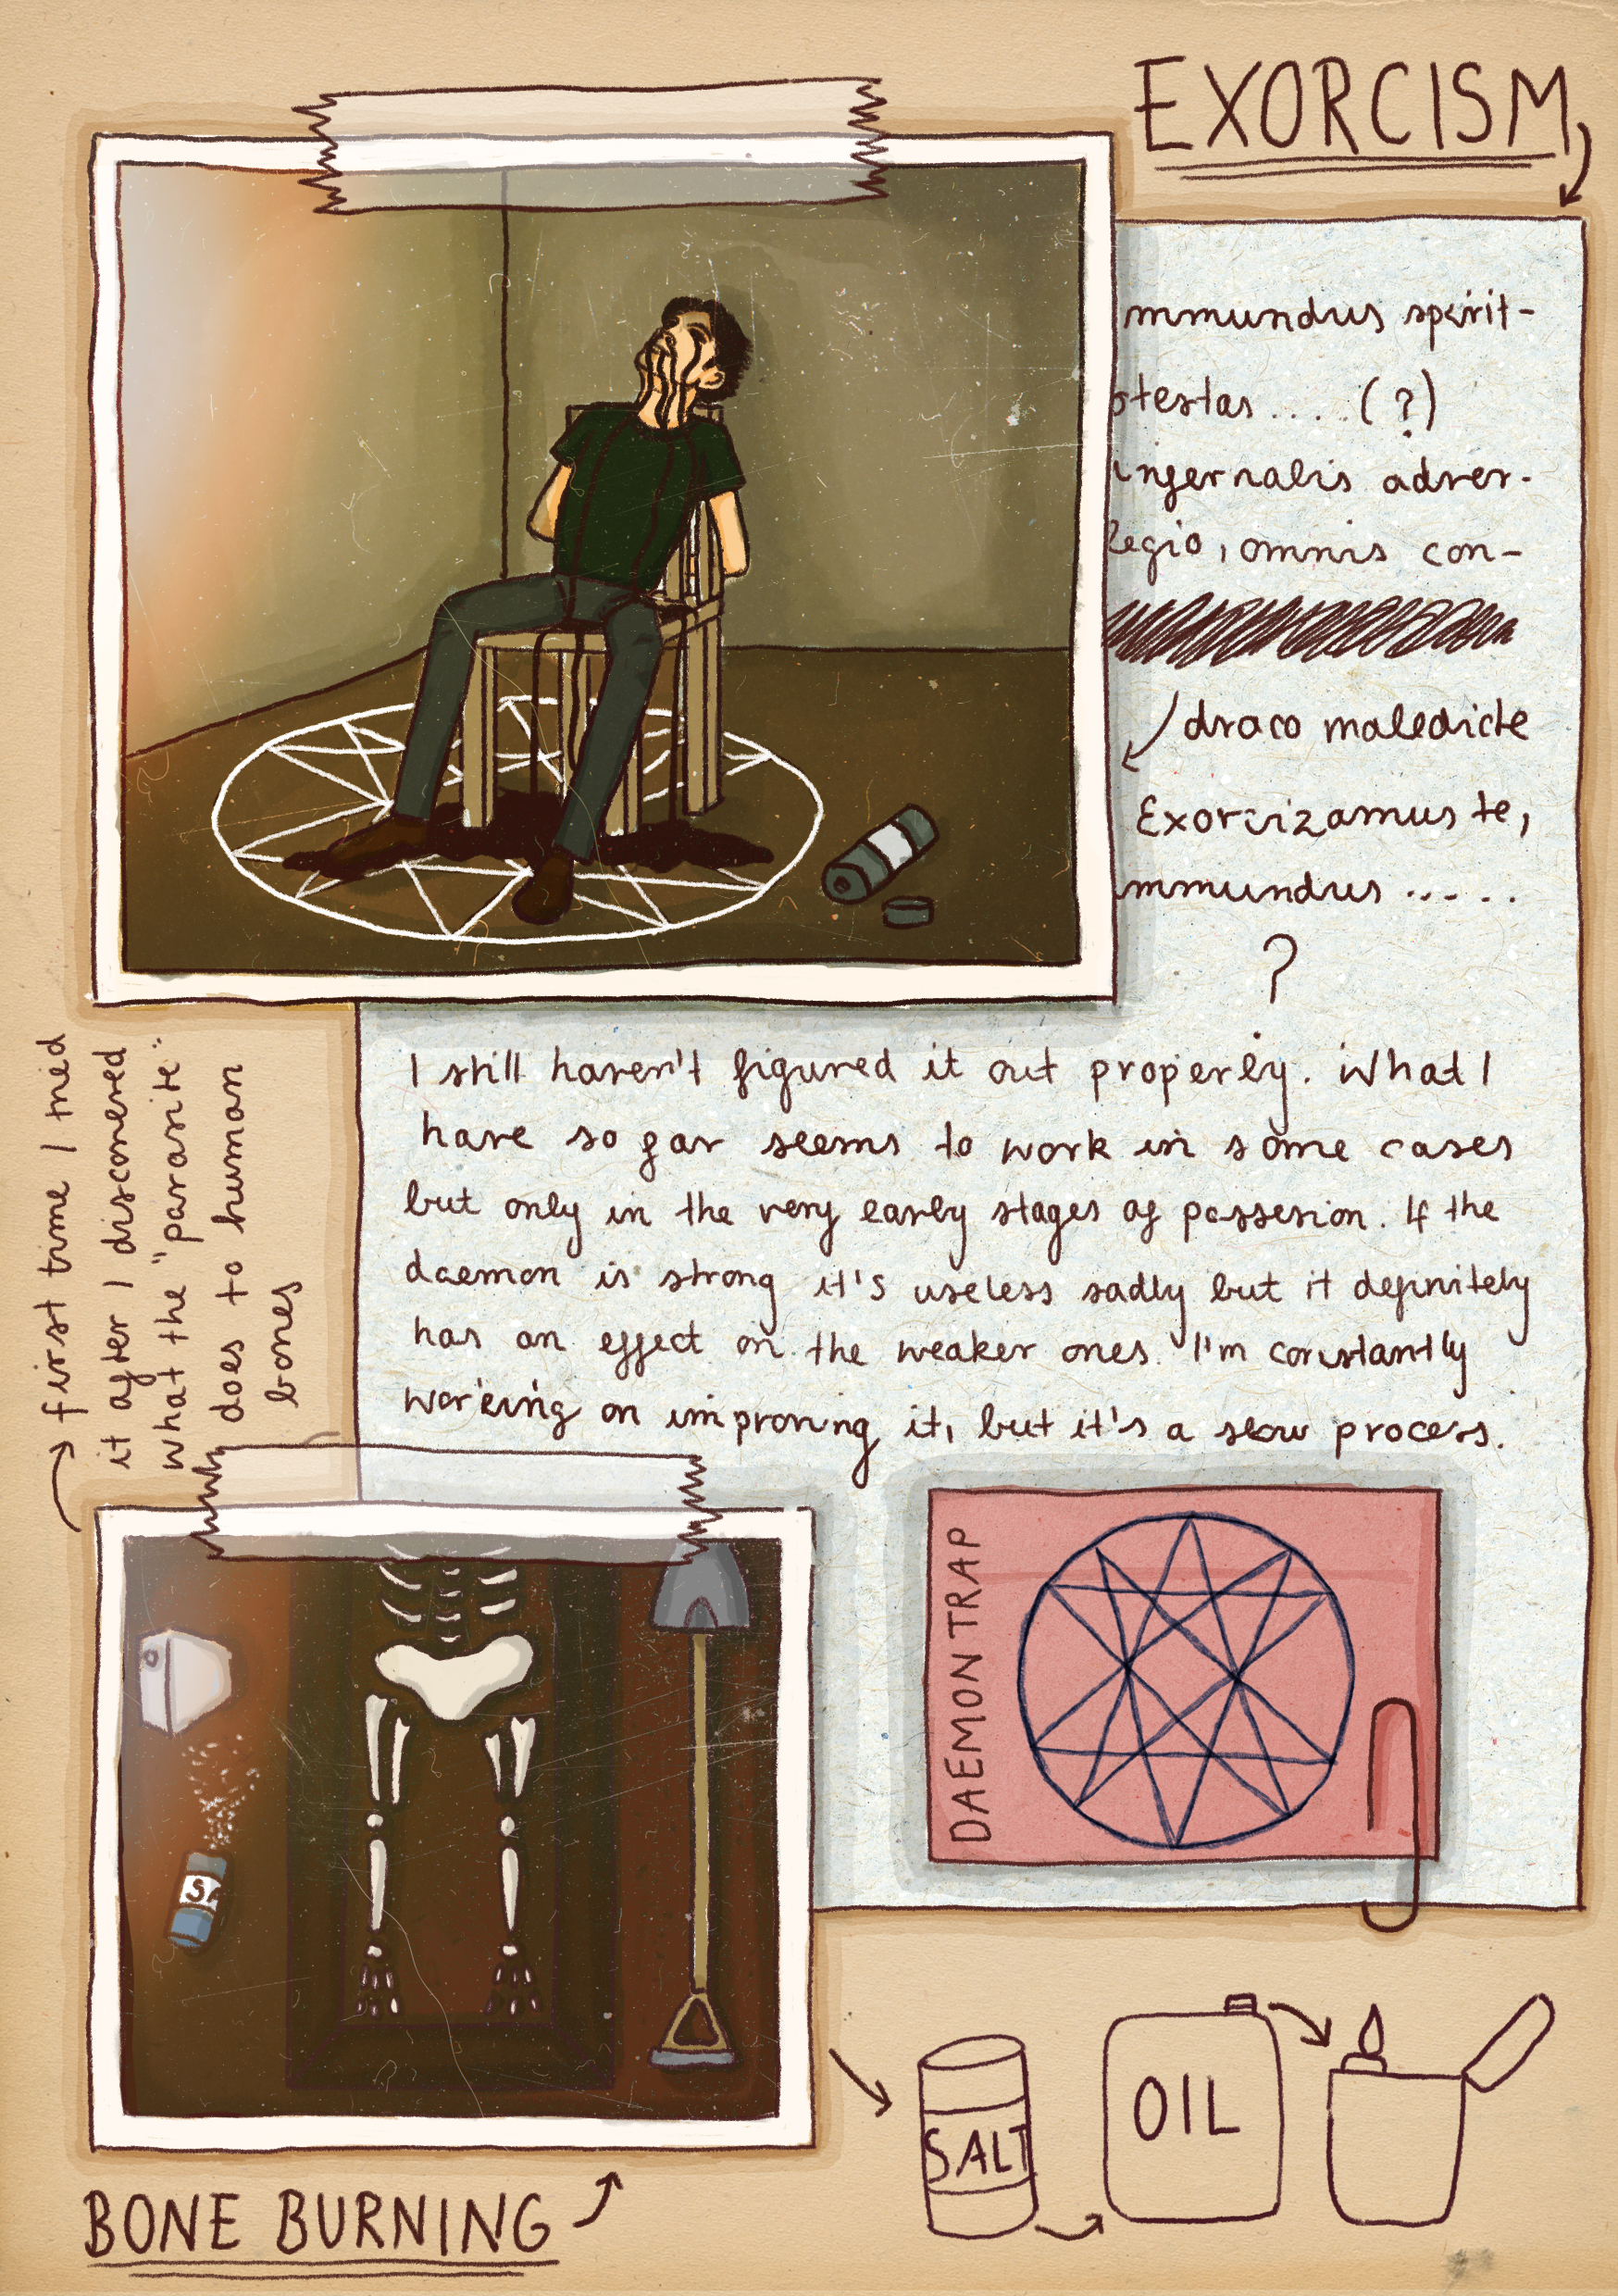 EXORCISM
mmundus spirit-
otestas .... (?)
infernalis adver-
legio, omnis con-
draco maledicte
Exorcizamus te,
mmundus .....
?
I still haven't figured it out properly. What I
have so far seems to work in some cases
but only in the very early stages of possesion. If the
daemon is strong it's useless sadly but it definitely
has an effect on the weaker ones. I'm constantly
working on improving it, but it's a slow process.
first time I tried
it after I discovered
what the "parasite"
does to human
bones
DAEMON TRAP
SALT
OIL
BONE BURNING